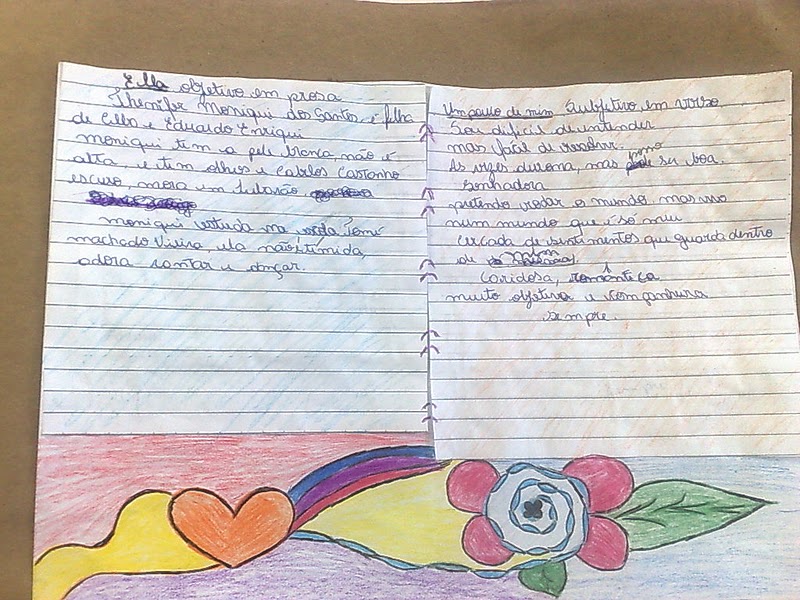 Ella objetivo em prosa
Thenifer Moniqui dos Santos, é filha
de Celba e Eduardo Enriqui
moniqui tem a pele branca, não é
alta, e tem olhos e cabelos castanho
escuro, mora em
moniqui estuda na escola Tomé
machado Vieira ela não é timida,
adora cantar e dançar.
Um pouco de mim Subjetivo em verso
Sou dificil de entender
mas fácil de resolver.
As vezes durona, mas posso ser boa.
Sonhadora
pretendo rodar o mundo, mas vivo
num mundo que é só meu
Cercada de sentimentos que guarda dentro
de mim
Caridosa, romântica
muito objetiva e companheira
sempre.